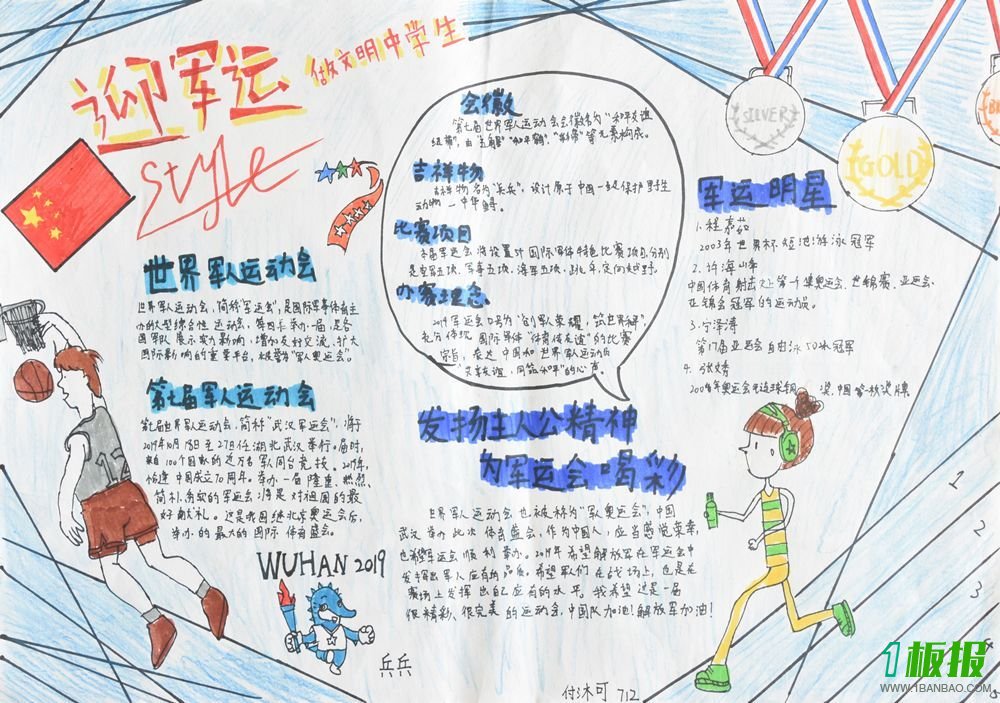 迎军运
做文明中学生
style
世界军人运动会
世界军人运动会,简称"军运会",是国际军事体育主
办的大型综合性运动会,每四年举办一届,是各
国军队展示实力影响,增加友好交流,扩大
国际影响的重要平台,被誉为"军人奥运会"。
第七届军人运动会
第七届世界军人运动会,简称"武汉军运会",将于
2019年10月18日至27日在湖北武汉举行。届时,
来自100个国家的近万名军人同台竞技。2019年,
恰逢中国成立70周年。举办一届隆重、热烈、
简朴、务实的军运会,将是对祖国的最
好献礼。这是我国继北京奥运会后,
举办的最大的国际体育盛会。
WUHAN 2019
兵兵
会徽
第七届世界军人运动会会徽名为"和平友谊
纽带",由"五角星""和平鸽""彩带"等元素构成。
吉祥物
吉祥物名为"兵兵",设计原于中国一级保护野生
动物—中华鲟。
比赛项目
本届军运会将设置对国际军体特色比赛项目,分别
是空军五项、军事五项、海军五项、跳伞、定向越野。
办赛理念
2019军运会口号为"创军人荣耀,筑世界和平",
充分体现国际军体"体育传友谊"的比赛
宗旨,表达中国和世界军人运动员
"共享友谊,同筑和平"的心声。
发扬主人公精神
为军运会喝彩
世界军人运动会也被称为"军人奥运会",中国
武汉举办此次体育盛会,作为中国人,应当感觉荣幸,
也希望军运会顺利举办。2019年希望解放军在军运会中
发挥出军人应有的品质。希望军人们在战场上,也是在
赛场上发挥出自己应有的水平。我希望这是一届
很精彩、很完美的运动会,中国队加油!解放军加油!
SILVER
GOLD
军运明星
1.程嘉茹
2003年世界杯短池游泳冠军
2.许海峰
中国体育射击史上第一个集奥运会、世锦赛、亚运会、
亚锦会冠军的运动员。
3.宁泽涛
第17届亚运会自由泳50米冠军
4.张文秀
2008年奥运会女子链球铜 奖,中国第一枚奖牌
1
2
3
付沐可 712
1板报
WWW.1BANBAO.COM